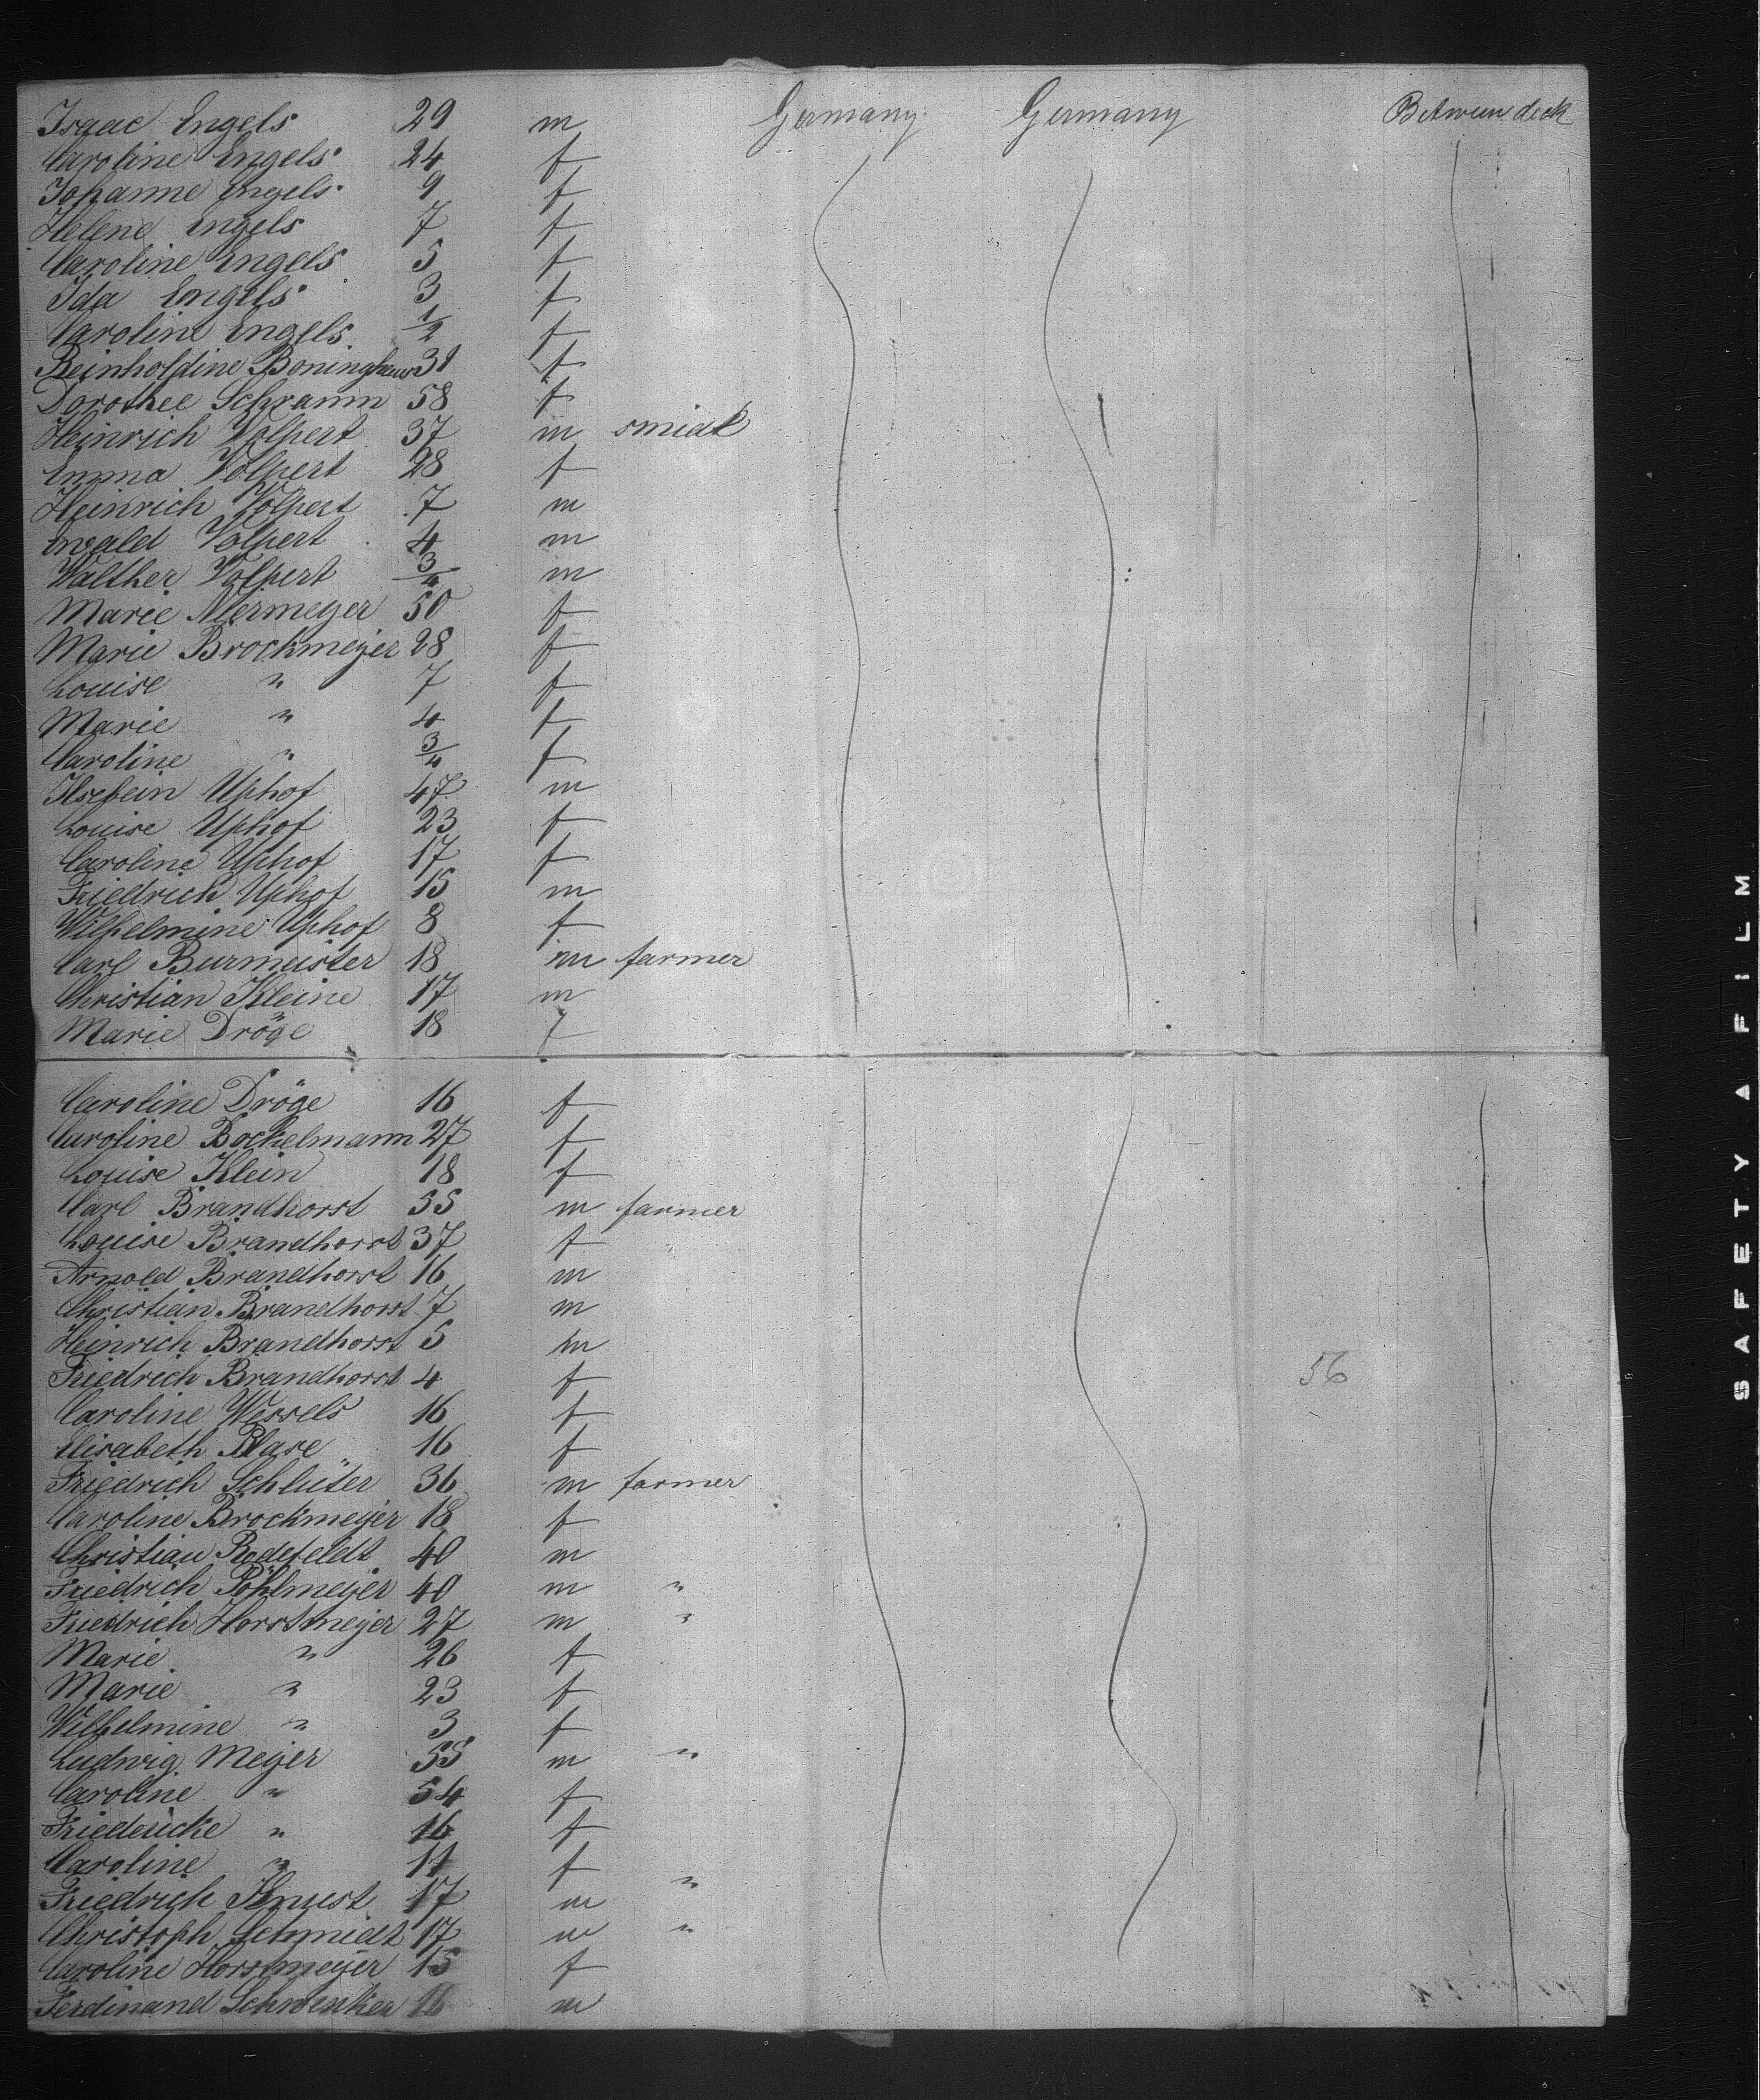 Isaac Engels 29 m Germany Germany Between deck
Caroline Engels 24 f
Johanne Engels 9 f
Helene Engels 7 f
Caroline Engels 5 f
Ida Engels 3 f
Caroline Engels 1/2 f
Reinholdine Boninghaus 31 f
Dorothee Schramm 58 f
Heinrich Volpert 37 m smidt
Emma Volpert 28 f
Heinrich Volpert 7 m
Ewald Volpert 4 m
Walther Volpert 3/4 m
Marie Niermeyer 50 f
Marie Brockmeyer 28 f
Louise " 7 f
Marie " 4 f
Caroline " 3/4 f
Ilsebein Uphof 47 m
Louise Uphof 23 f
Caroline Uphof 17 f
Friedrich Uphof 15 m
Wilhelmine Uphof 8 f
Carl Burmeister 18 m farmer
Christian Kleine 17 m
Marie Dröge 18 f
Caroline Dröge 16 f
Caroline Bockelmann 27 f
Louise Klein 18 f
Carl Brandhorst 35 m farmer
Louise Brandhorst 37 f
Arnold Brandhorst 16 m
Christian Brandhorst 7 m
Heinrich Brandhorst 5 m
Friedrich Brandhorst 4 f 56
Caroline Wessels 16 f
Elisabeth Blase 16 f
Friedrich Schlüter 36 m farmer
Caroline Brockmeyer 18 f
Christian Rodefeldt 40 m
Friedrich Pöhlmeyer 40 m "
Friedrich Horstmeyer 27 m "
Marie " 26 f
Marie " 23 f
Wilhelmine " 3 f
Ludwig Meyer 55 m "
Caroline " 54 f
Friedericke " 16 f
Caroline " 11 f
Friedrich Knust 17 m "
Christoph Schmidt 17 m "
Caroline Horstmeyer 15 f
Ferdinand Schwenker 16 m
SAFETY A FILM